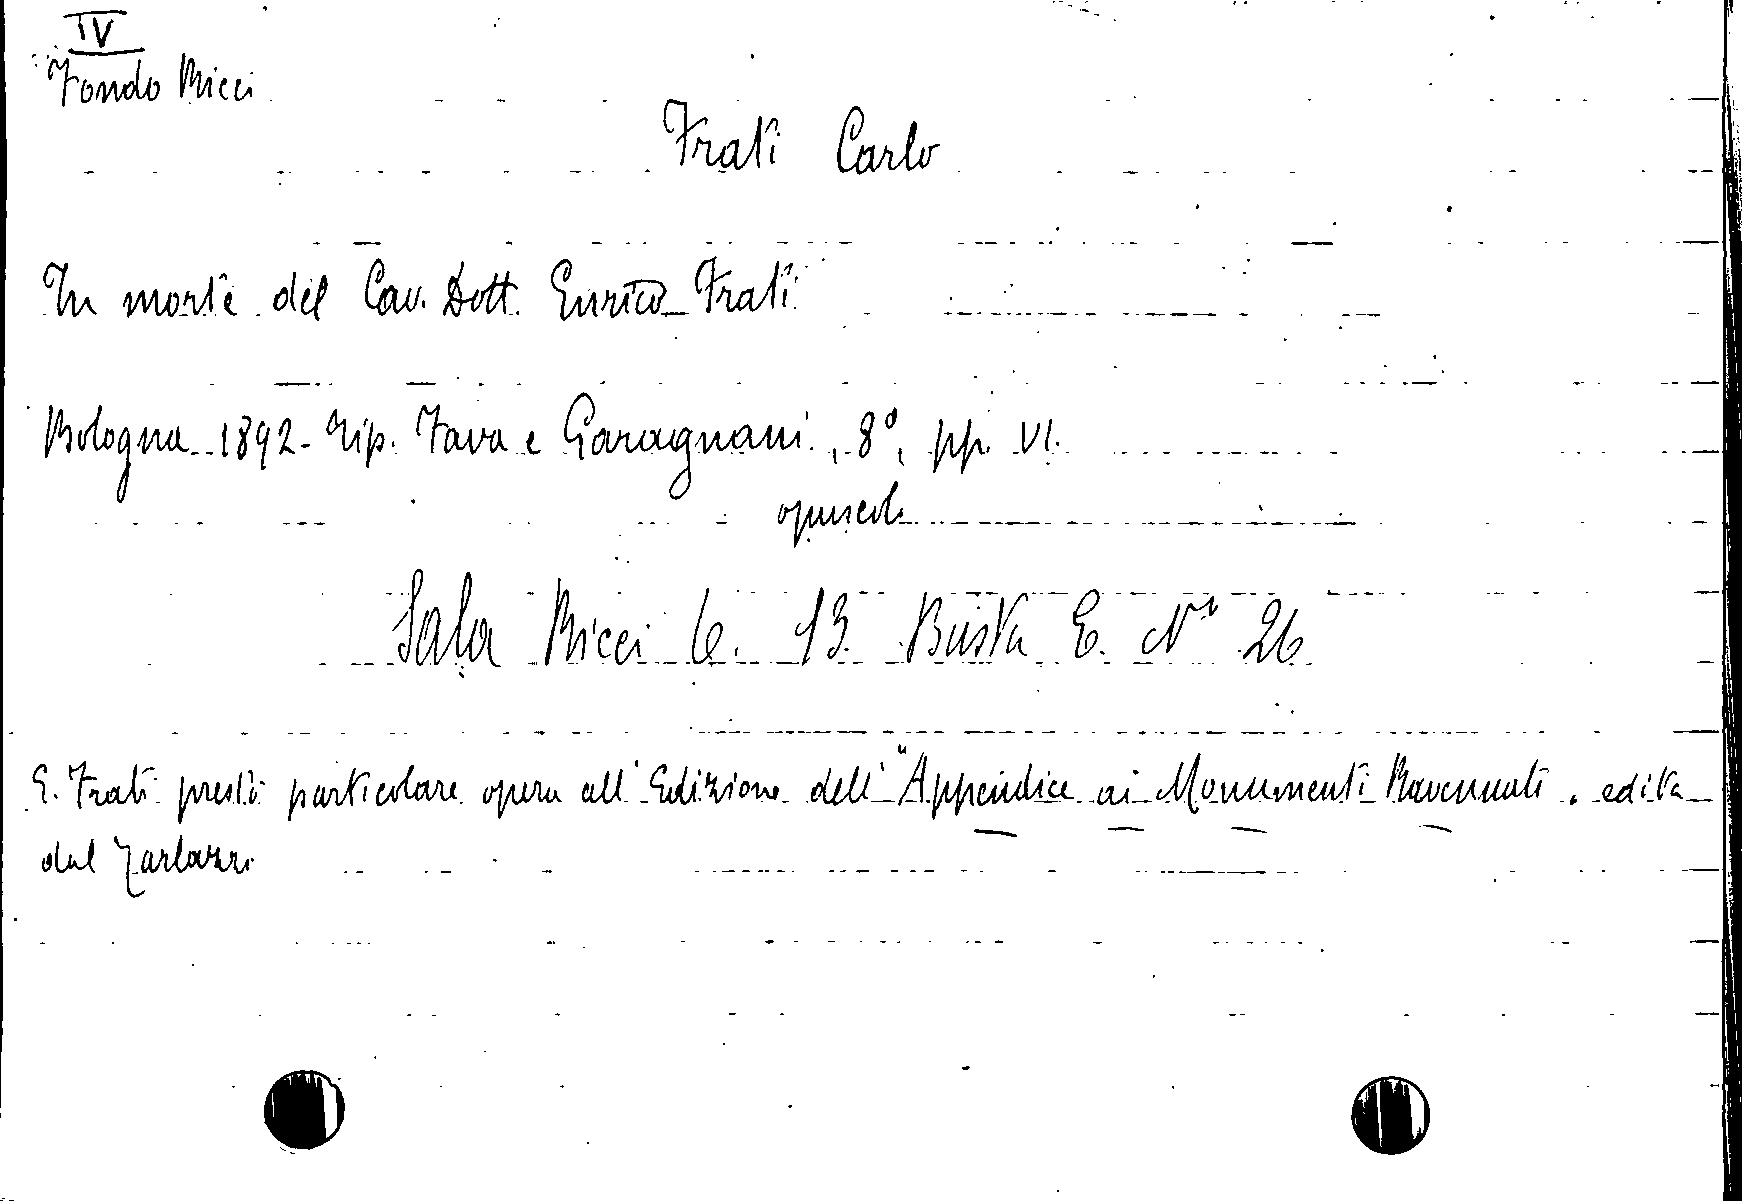 IV
Fondo Ricci
Frati Carlo
In morte del Cav. Dott. Enrico Frati
Bologna 1892 - Tip. Fava e Garagnani, 8°, pp. VI.
opuscolo
Sala Ricci 6. 13. Busta E. Nº 26
E. Frati prestò particolare opera all'Edizione dell'"Appendice ai Monumenti Ravennati, edita
dal Tarlazzi